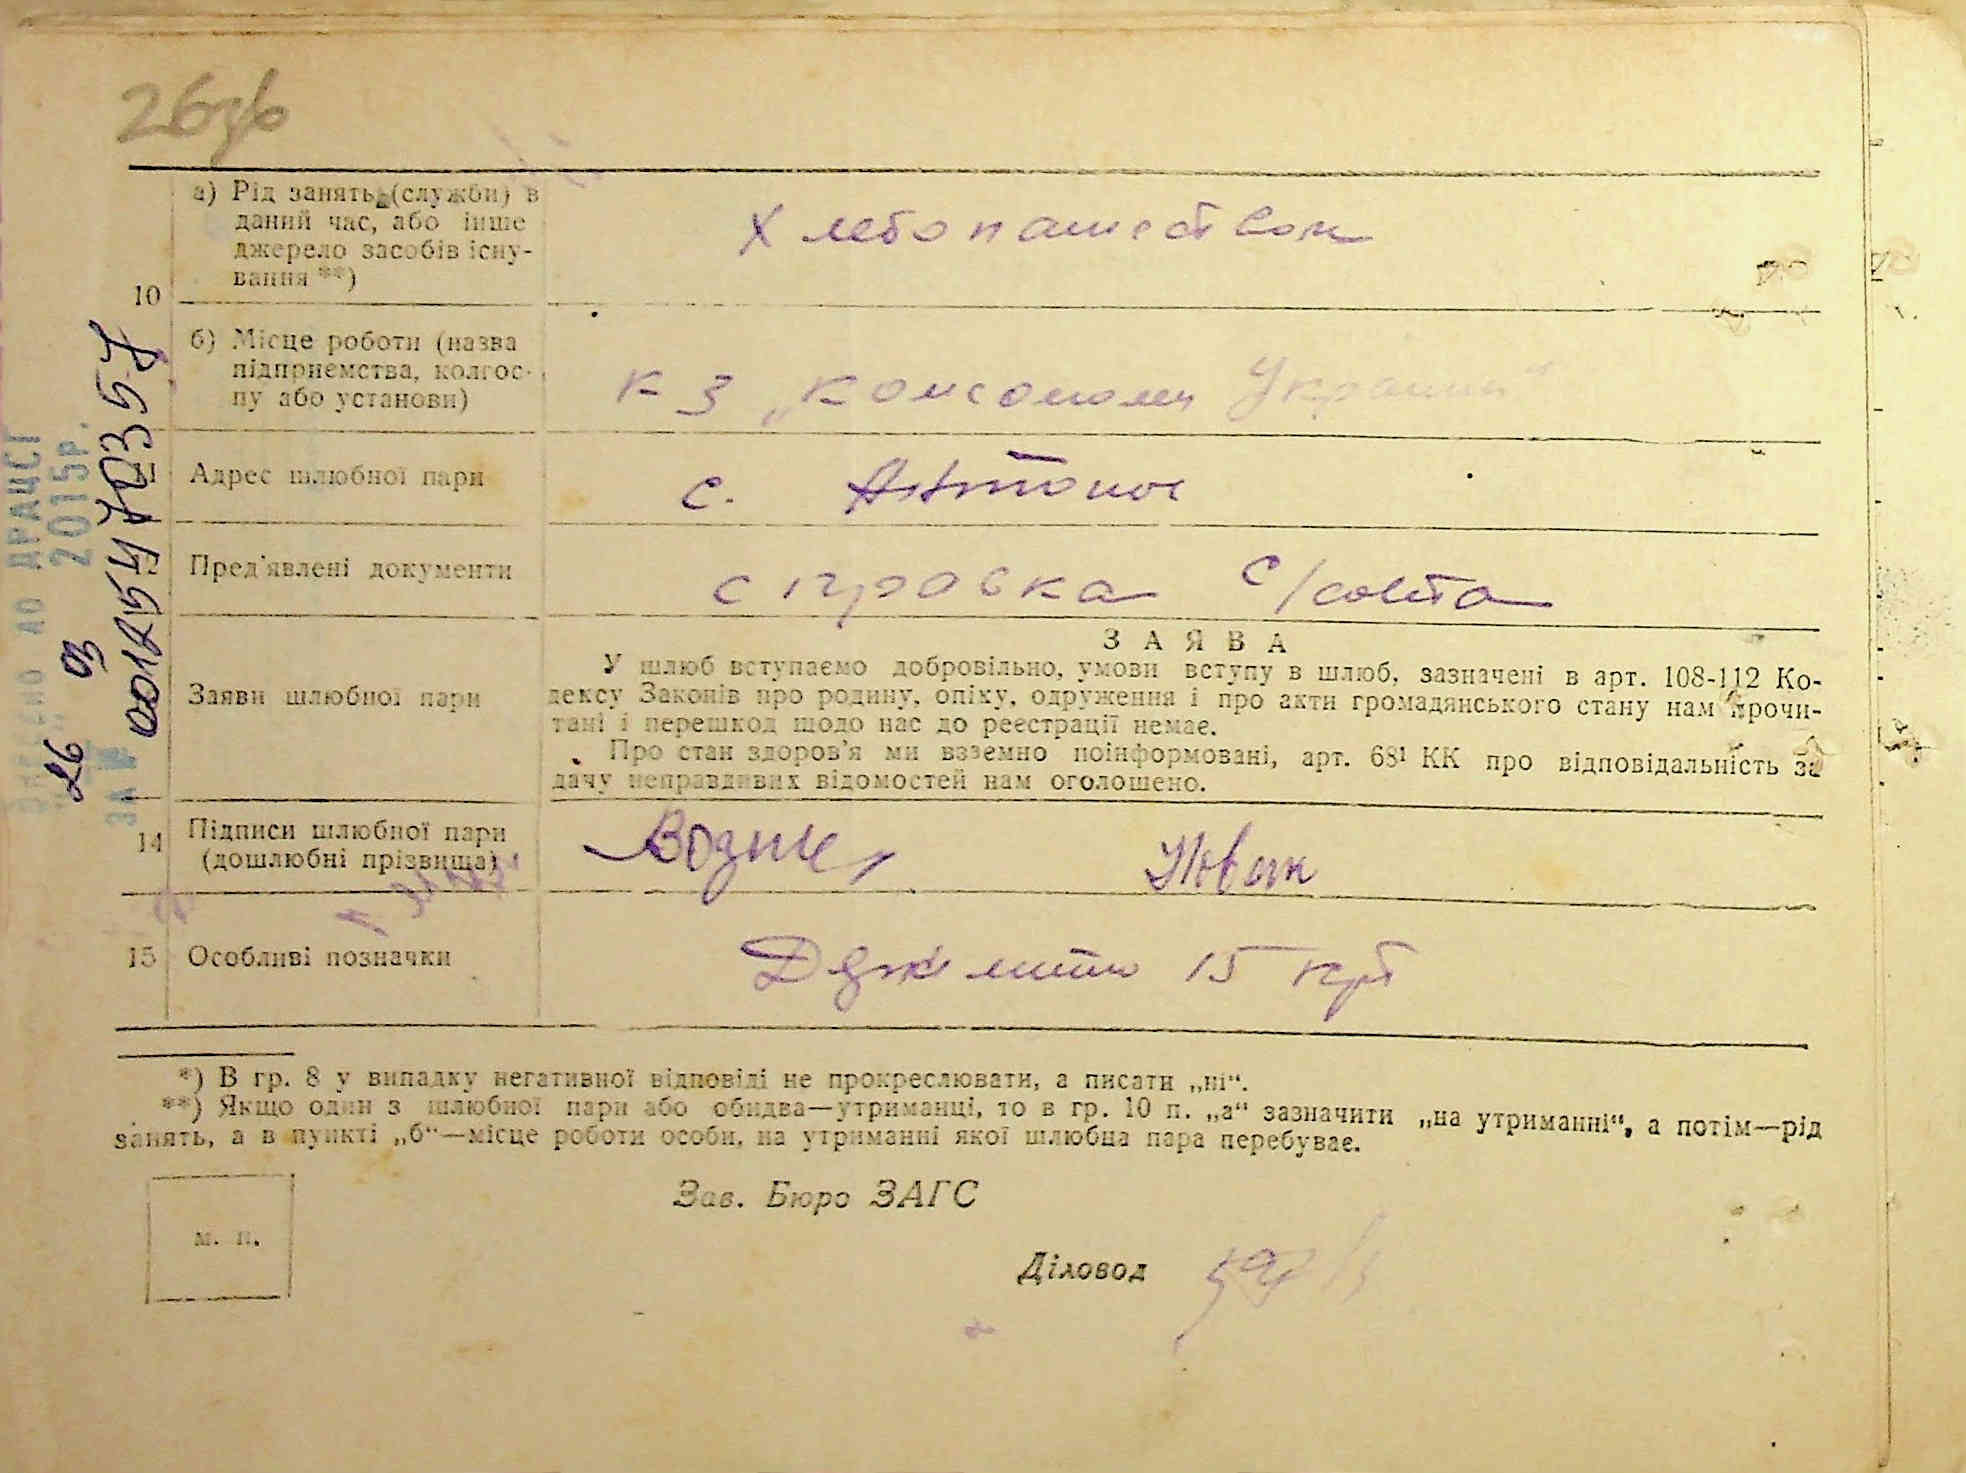 26зв
а) Рід занять (служби) в
даний час, або інше
джерело засобів існу-
вання **)
Хлебопашеством
10
б) Місце роботи (назва
підприємства, колгос-
пу або установи)
к з „Комсомолец Украины“
Адрес шлюбної пари
с. Антонов
Пред'явлені документи
справка с/совета
Заяви шлюбної пари
ЗАЯВА
У шлюб вступаємо добровільно, умови вступу в шлюб, зазначені в арт. 108-112 Ко-
дексу Законів про родину, опіку, одруження і про акти громадянського стану нам прочи-
тані і перешкод щодо нас до реєстрації немає.
Про стан здоров'я ми взземно поінформовані, арт. 68¹ КК про відповідальність за
дачу неправдивих відомостей нам оголошено.
14
Підписи шлюбної пари
(дошлюбні прізвища)
15
Особливі позначки
15
*) В гр. 8 у випадку негативної відповіді не прокреслювати, а писати „ні“.
**) Якщо один з шлюбної пари або обидва—утриманці, то в гр. 10 п. „а“ зазначити „на утриманні“, а потім—рід
занять, а в пункті „б“—місце роботи особи, на утриманні якої шлюбна пара перебуває.
м. п.
Зав. Бюро ЗАГС
Діловод
ДО ДРАЦСГ
26 03 2015р.
ЗА №
00125447357